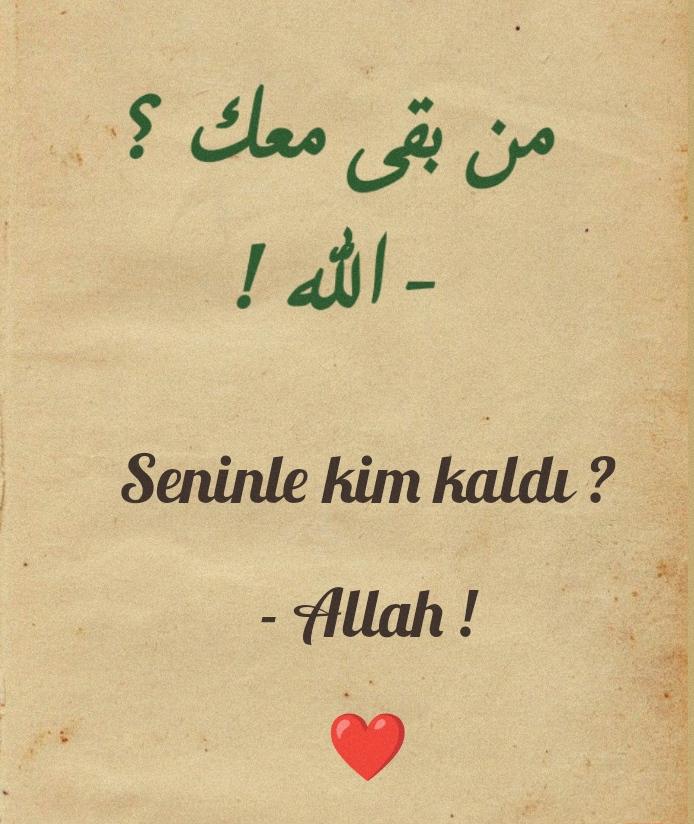 من بقى معك ؟
- الله !
Seninle kim kaldı ?
- Allah !